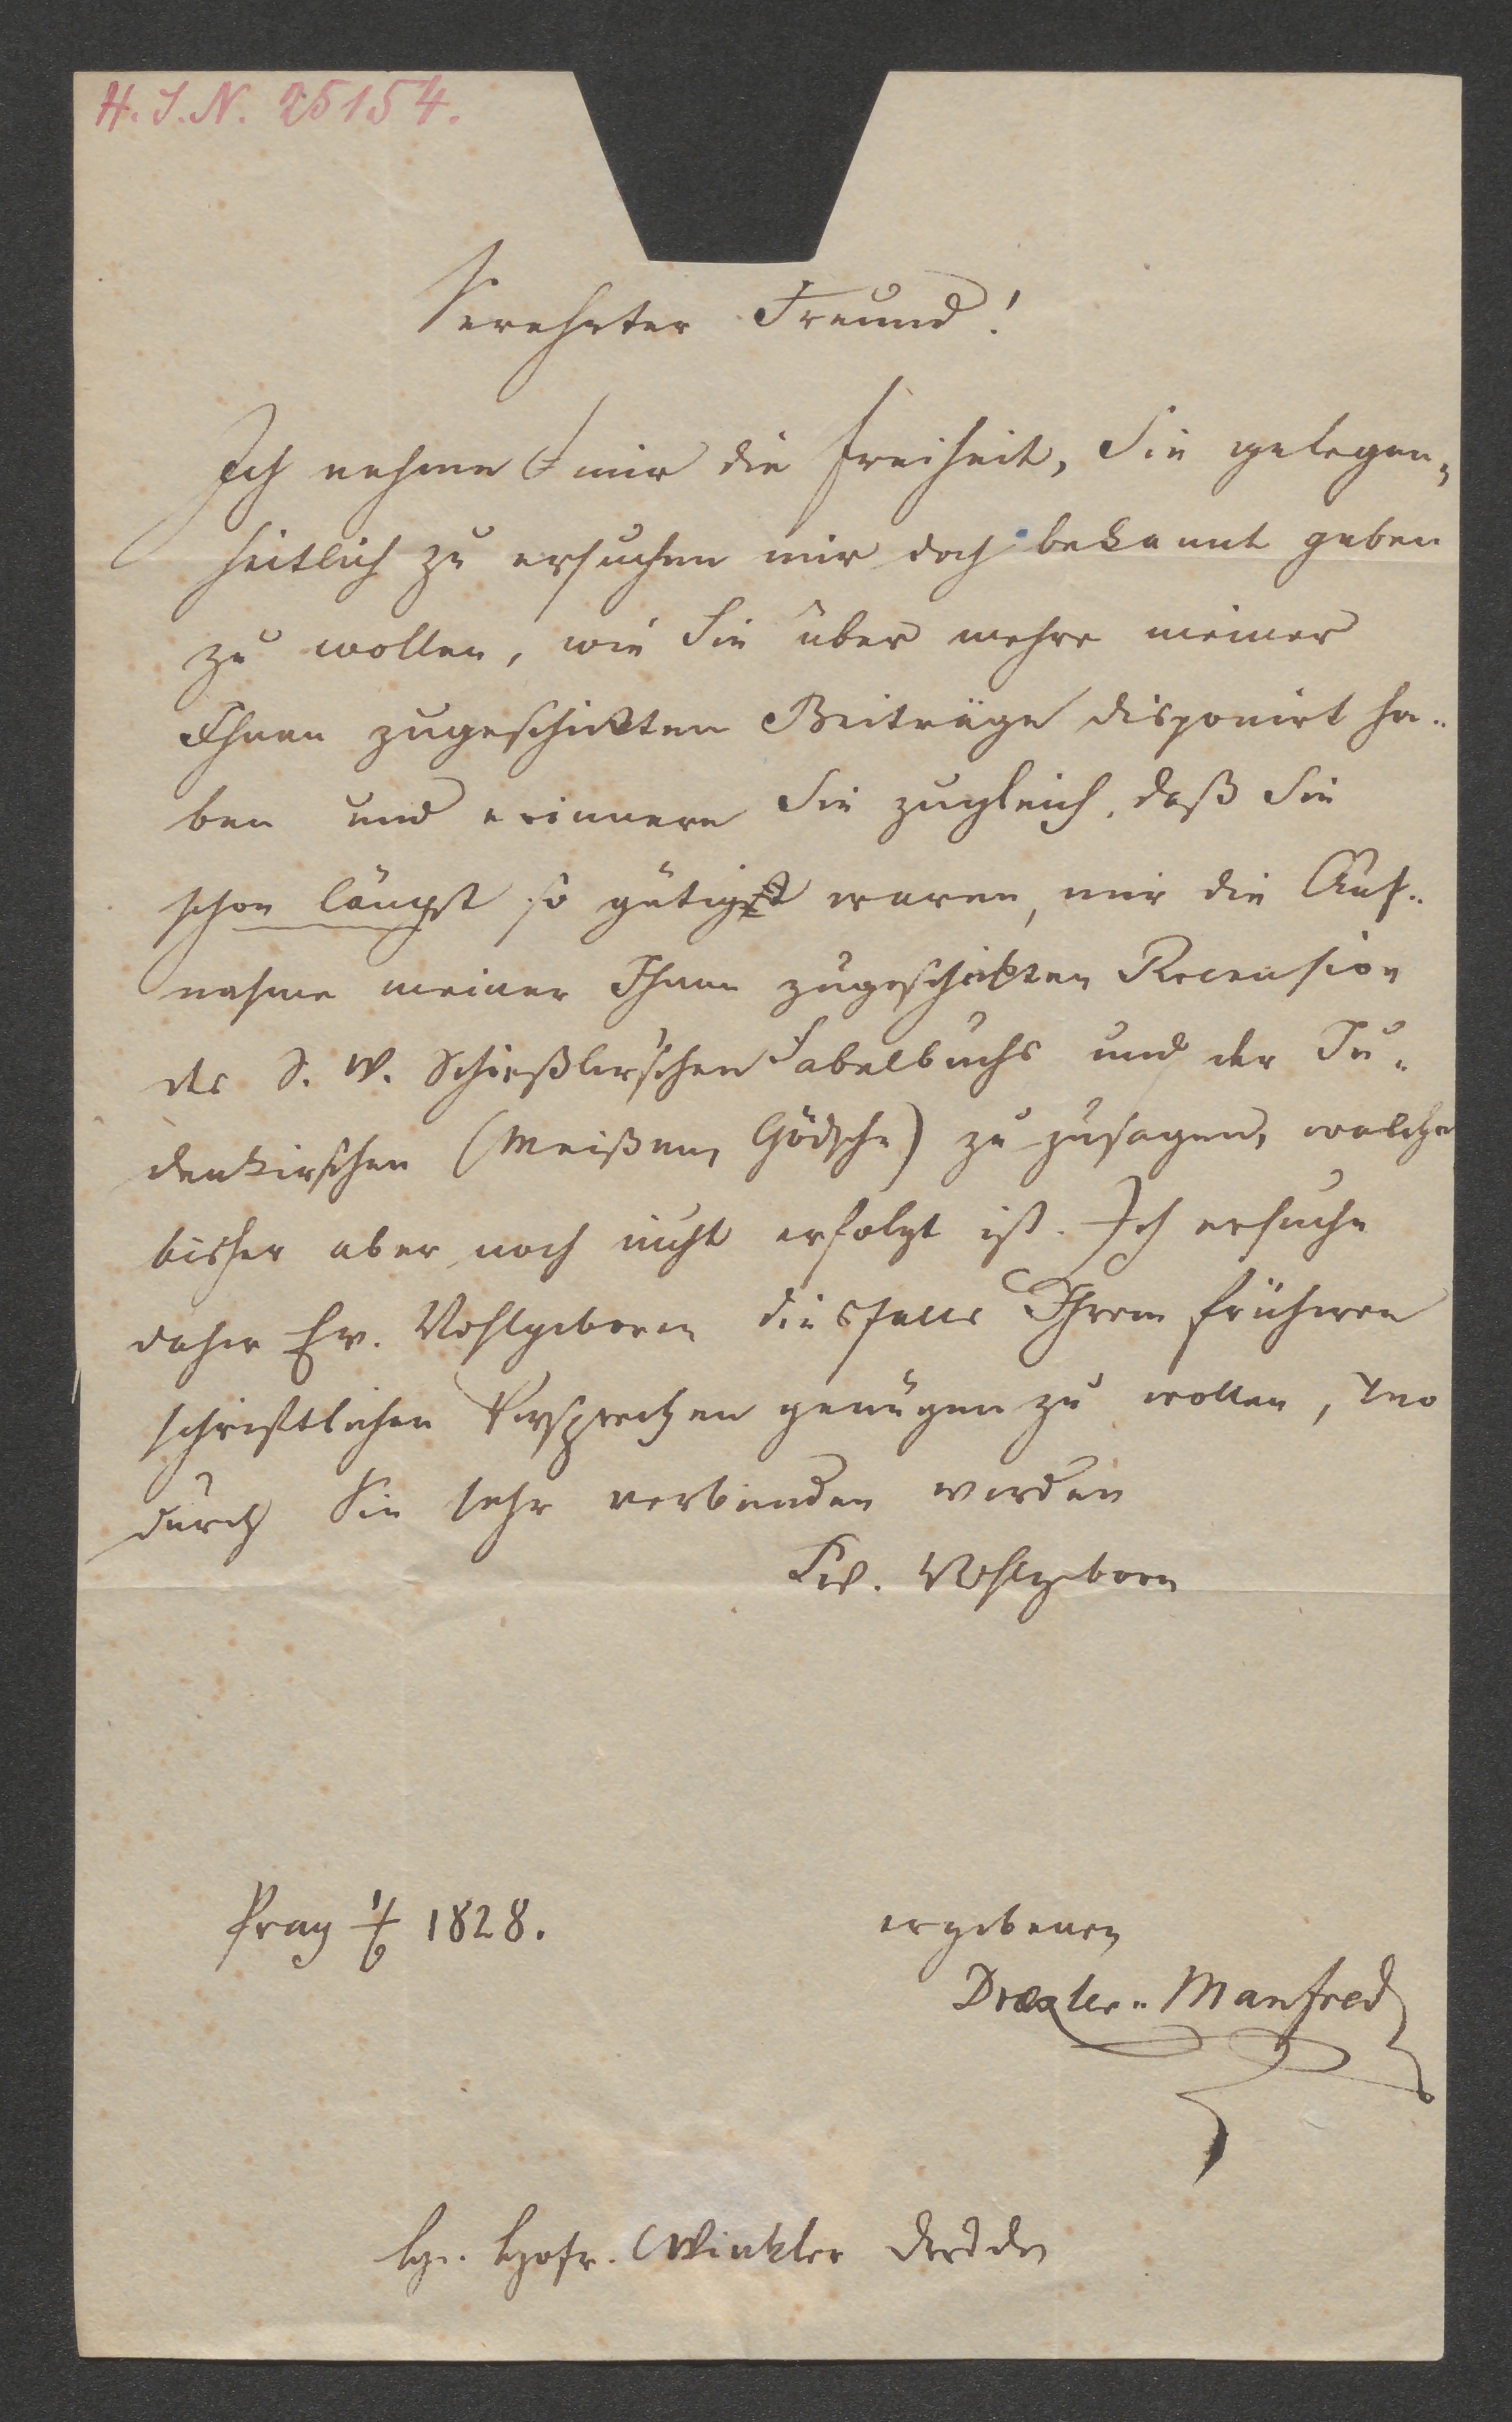 H.I.N. 25154.
Verehrter Freund!
Ich nehme mir die Freiheit, Sie gelegen„
heitlich zu ersuchen mir doch bekannt geben
zu wollen, wie Sie über mehre meiner
Ihnen zugeschickten Beiträge disponirt ha„
ben und erinnere Sie zugleich, daß Sie
schon längst so gütig waren, mir die Auf„
nahme meiner Ihnen zugeschickten Recension
des S. W. Schießler'schen Fabelbuchs und der Tu„
denkirschen (Meißen, Gödsche) zu zusagen, welche
bisher aber noch nicht erfolgt ist. Ich ersuche
daher Ew. Wohlgeboren diesfalls Ihrem früheren
schriftlichen Versprechen genügen zu wollen, wo
durch Sie sehr verbinden werden
Ew. Wohlgeborn
Prag 1/6 1828.
ergebenen
Dræxler„Manfred
Hr. Hofr. Winkler Dresden